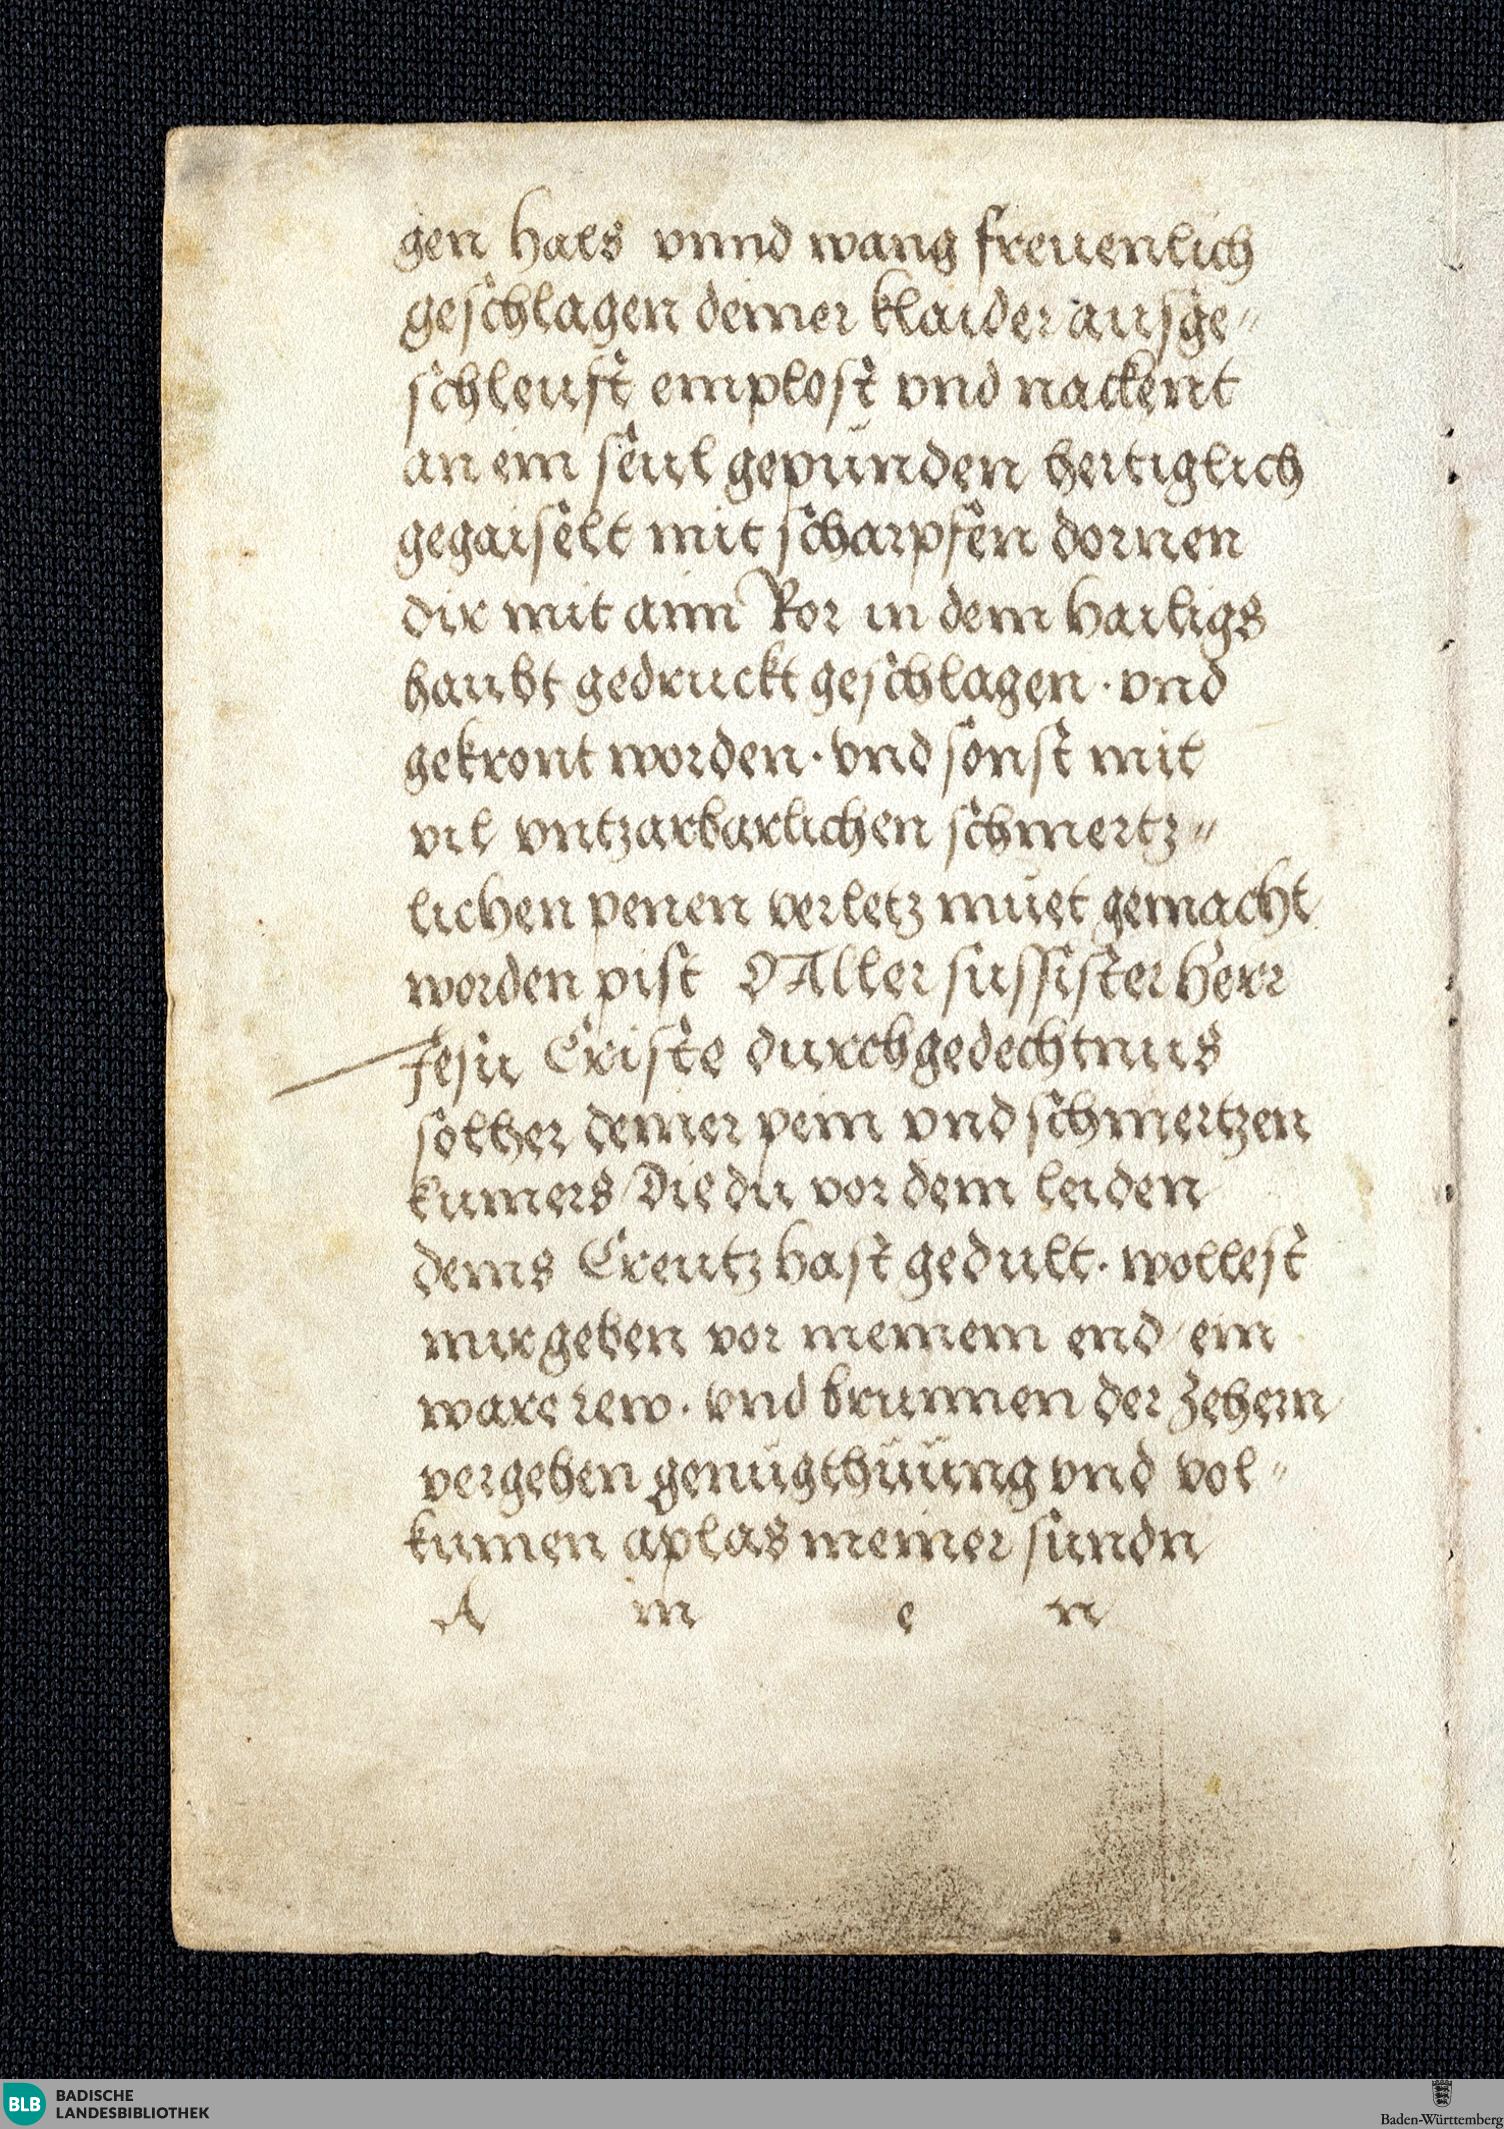 gen hals vnnd wang freuenlich
geschlagen deiner klaider ausge=
schleuft emplost vnd nackent
an ein seul gepunden hertiglich
gegaiselt mit scharpfen dornen
dir mit aim Ror in dem hailigs
haubt gedruckt geschlagen · vnd
gekront worden · vnd sonst mit
vil vntzarbarlichen schmertz=
lichen penen verletz muet gemacht
worden pist O Aller sussister herr
Jesu Criste durch gedechtnus
solher deiner pein vnd schmertzen
kumers / Die du vor dem leiden
deins Creutz hast gedult · wollest
mir geben vor meinem end / ein
ware rew · vnd brunnen der Zehern
vergeben genugthuung vnd vol=
kumen aplas meiner sundn
A m e n
BLB BADISCHE
LANDESBIBLIOTHEK
Baden-Württemberg